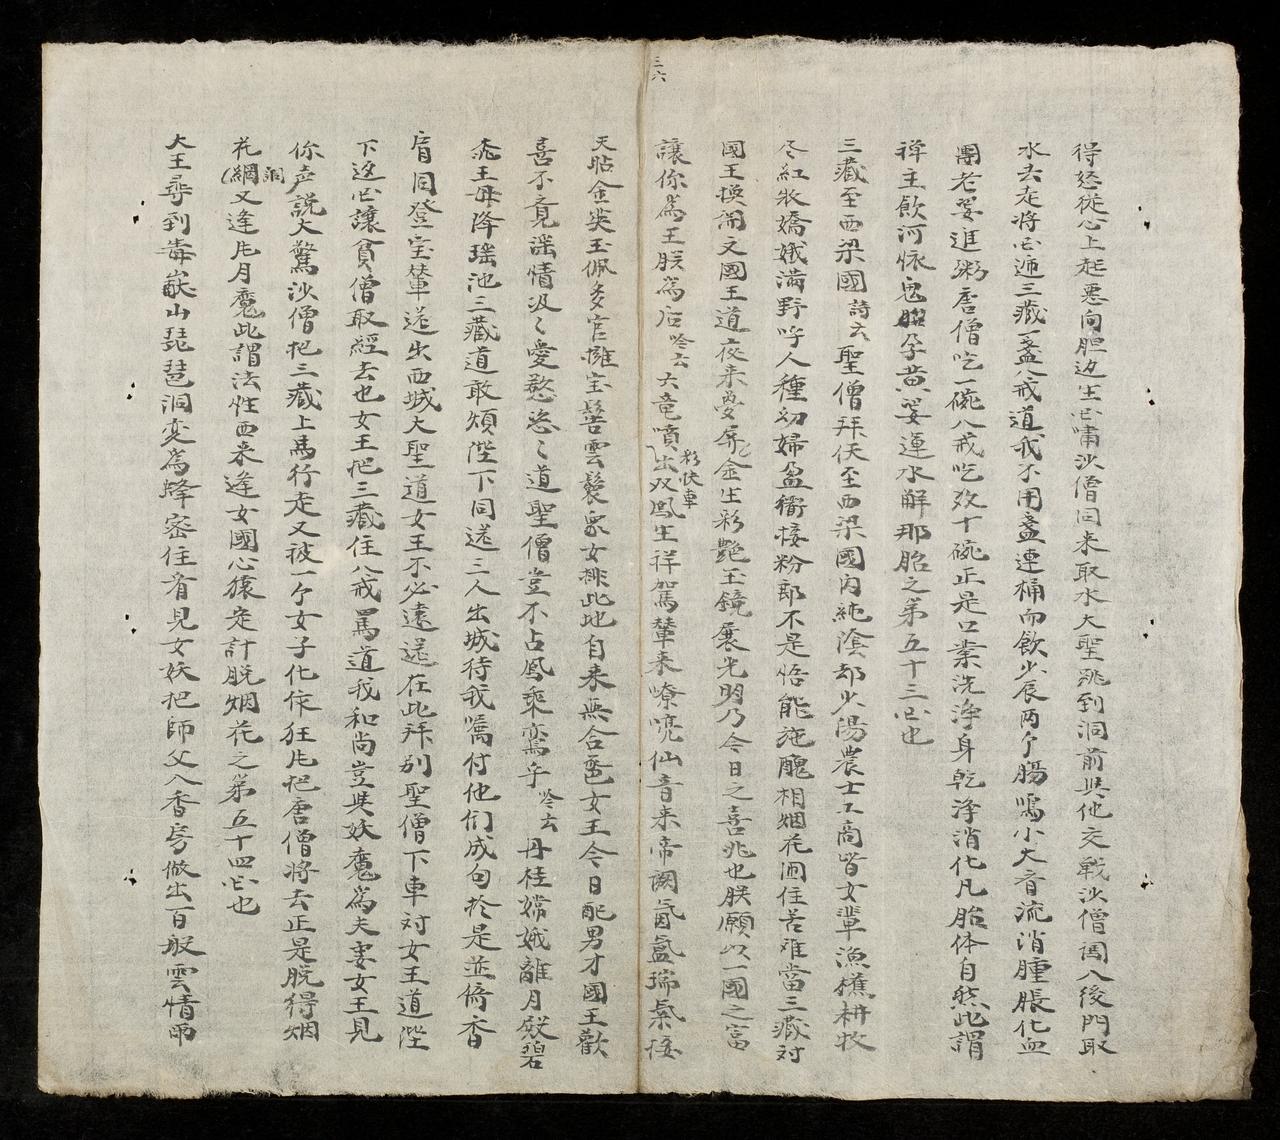 三六
得怒從心上起惡向胆边生叱嘯沙僧回来取水大聖跳到洞前與他交戰沙僧闯入後門取
水去走將叱逓三藏一盞八戒道我不用盞連桶而飲少辰两个腸鳴小大音流消腫脹化血
團老婆進粥唐僧吃一碗八戒吃数十碗正是口業洗浄身乾浄消化凡胎体自然此謂
禅主飲河怀鬼胎孕黄婆運水解邪胎之第五十三回也
三藏至西梁國詩云聖僧拜佛至西梁國内純陰却少陽農士工商皆女輩漁樵耕牧
尽紅妝嬌娥满野呼人種幼婦盈衢接粉郎不是悟能施醜相烟花圍住苦难當三藏对
國王换闹文國王道夜来夢屏金生彩艶玉鏡展光明乃今日之喜兆也朕願以一國之富
讓你為王朕為后唫云六竜噴彩快車出双鳳生祥駕輦来嘹喨仙音来帝阙氤氲瑞氣接
天帖金英玉佩多官擁宝髻雲鬟衆女排此地自来無合巹女王今日配男才國王歡
喜不竟謡情汲々愛慾恣々道聖僧豈不占鳳乘鸞乎唫云丹桂嫦娥離月殿碧
桃王母降瑶池三藏道敢煩陛下同送三人出城待我嘱付他们成句扵是並倚香
肩同登宝輦送出西城大聖道女王不必遠送在此拜别聖僧下車对女王道陛
下返叱讓貧僧取經去也女王把三藏住八戒罵道我和尚豈與妖魔為夫妻女王見
你声說大驚沙僧把三藏上馬行走又被一个女子化作狂風把唐僧將去正是脱得烟
花網又逢風月魔此謂法性西来逢女國心猿定計脱烟花之第五十四回也
洞
大王尋到毒敵山琵琶洞变為蜂蜜住看見女妖把師父入香房做出百般雲情雨